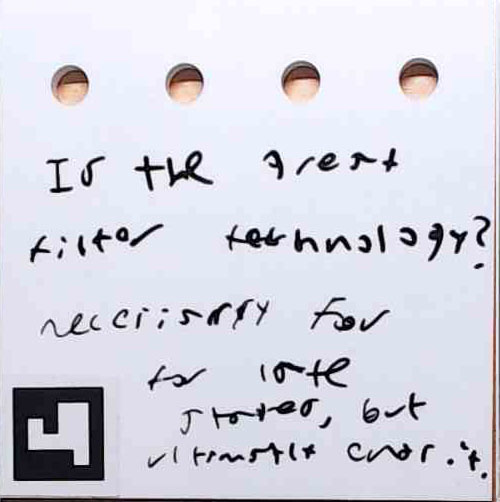 Is the great
filter technology?
neccissary for
for late
stages, but
ultimatly ends it.